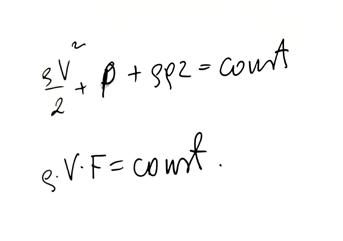 ρV²/2 + p + ρgz = const
ρ·V·F = const.